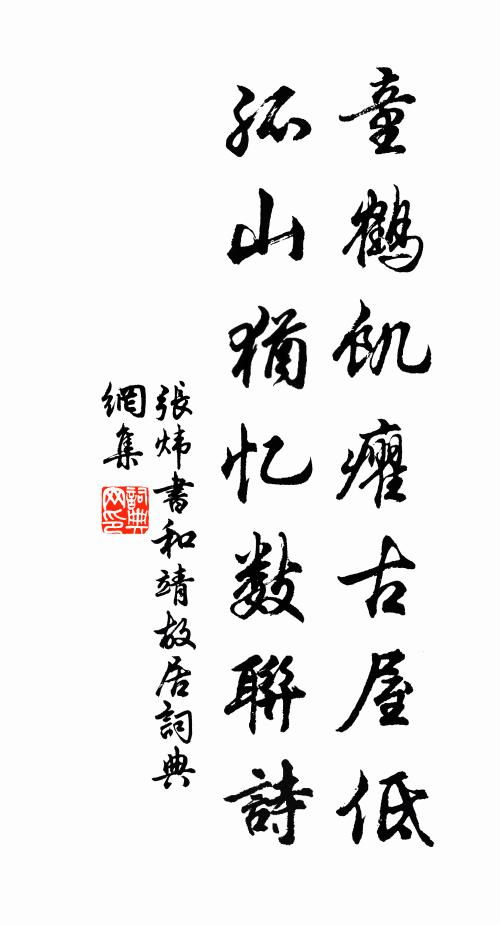 童鹤飢癯古屋低
孤山猶忆数聯詩
張炜書和靖故居詞典
網集
詞典
网印